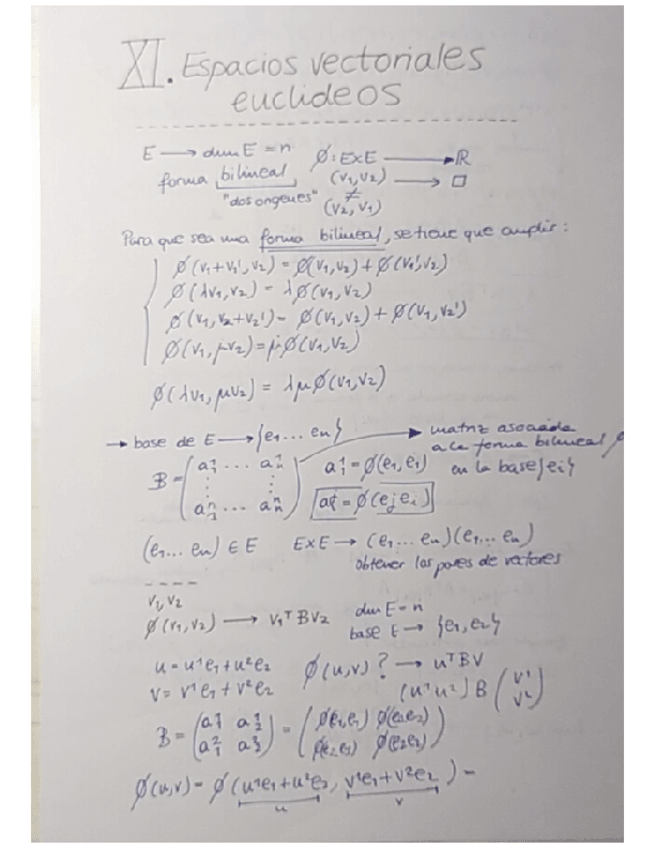 XI. Espacios vectoriales
euclideos
E → dim E = n   ø: E×E → ℝ
forma bilineal   (v₁, v₂) → □
"dos orígenes"   ≠
(v₂, v₁)
Para que sea una forma bilineal, se tiene que cumplir:
ø(v₁+v₁', v₂) = ø(v₁, v₂) + ø(v₁', v₂)
ø(λv₁, v₂) = λø(v₁, v₂)
ø(v₁, v₂+v₂') = ø(v₁, v₂) + ø(v₁, v₂')
ø(v₁, μv₂) = μø(v₁, v₂)
ø(λv₁, μv₂) = λμø(v₁, v₂)
→ base de E → {e₁ ... eₙ}   → matriz asociada
a la forma bilineal ø
en la base {ei}
B = (a¹₁ ... a¹ₙ   a¹₁ = ø(e₁, e₁)
⋮ ⋮
aⁿ₁ ... aⁿₙ)   = ø(ej ei)
(e₁ ... eₙ) ∈ E   E×E → (e₁ ... eₙ)(e₁ ... eₙ)
obtener los pares de vectores
v₁, v₂
ø(v₁, v₂) → v₁ᵀ B v₂   dim E = n
base E → {e₁, e₂}
u = u¹e₁ + u²e₂   ø(u, v)? → uᵀBV
v = v¹e₁ + v²e₂   (u¹ u²) B (v¹
v²)
B = (a¹₁ a¹₂   = (ø(e₁,e₁) ø(e₁e₂)
a²₁ a²₂)   ø(e₂e₁) ø(e₂e₂))
ø(u, v) = ø(u¹e₁ + u²e₂, v¹e₁ + v²e₂) =
u   v